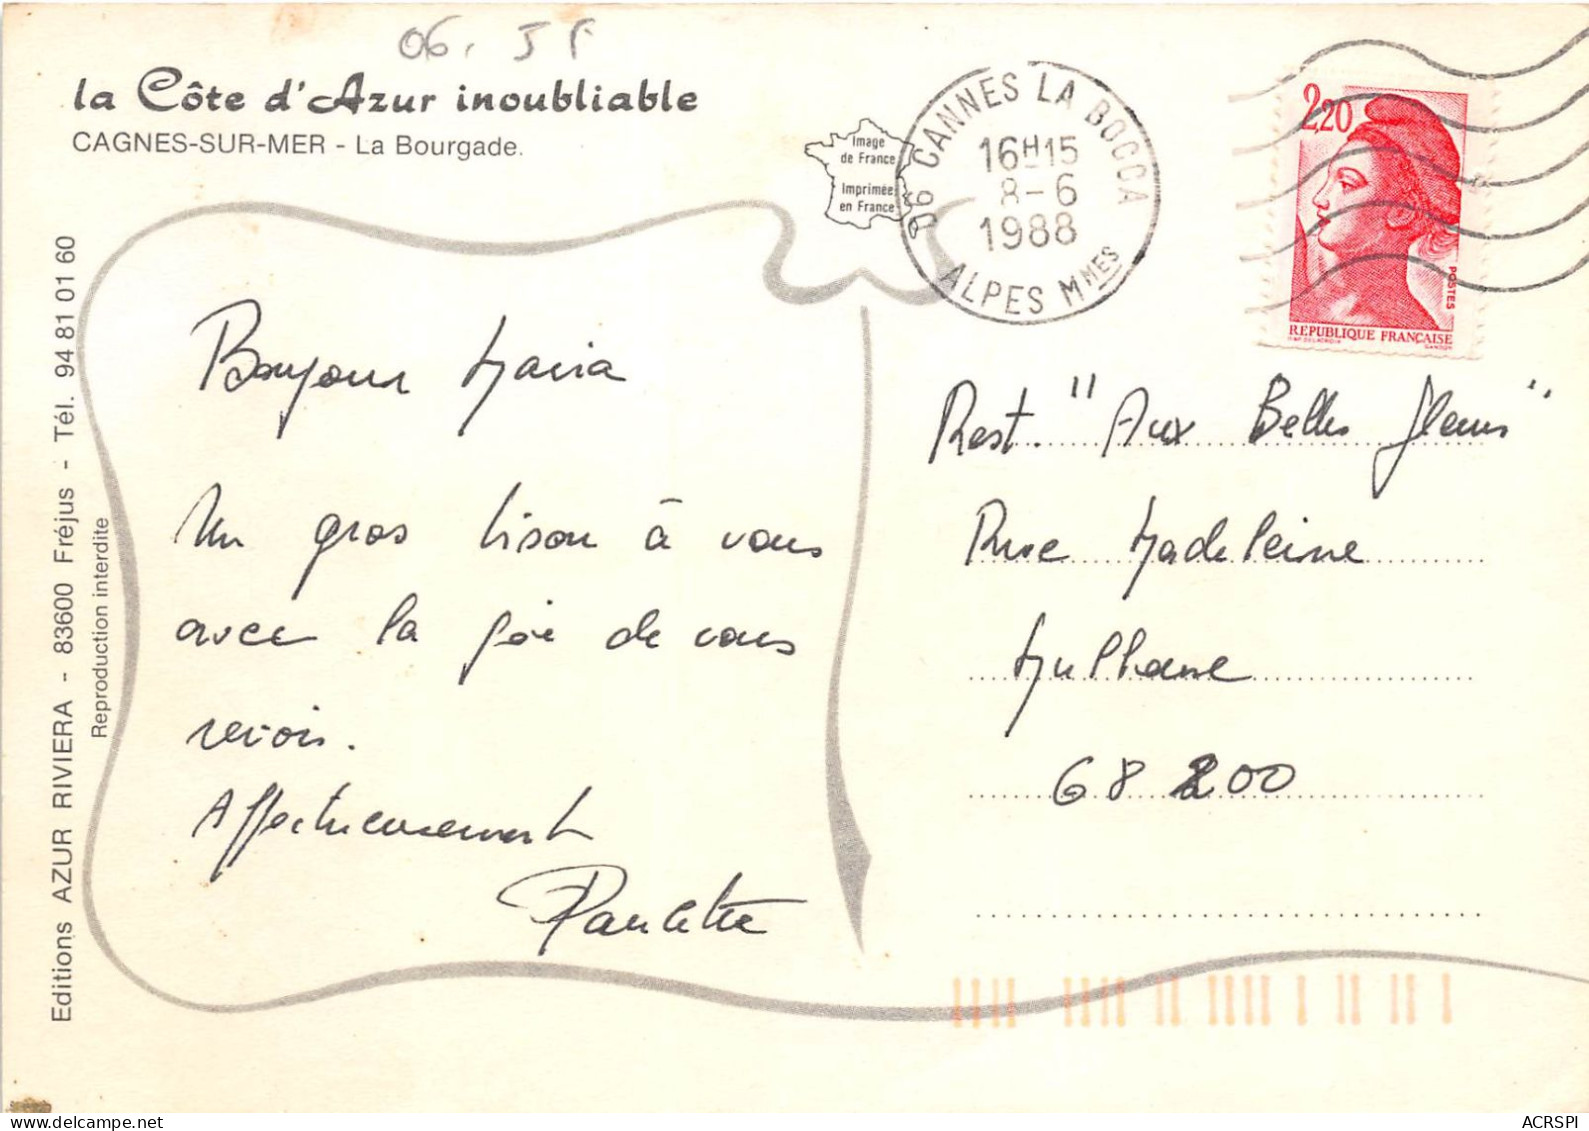 06. 5F
la Côte d'Azur inoubliable
CAGNES-SUR-MER - La Bourgade.
Image
de France
Imprimée
en France
06 CANNES LA BOCCA
16H15
8-6
1988
ALPES MMES
2,20
POSTES
REPUBLIQUE FRANÇAISE
D'AP. DELACROIX GANDON
Bonjour Maria
Un gros bisou à vous
avec la joie de vous
revoir.
Affectueusement
Paulette
Rest. "Aux Belles fleurs"
Rue Madeleine
Mulhouse
68 200
Editions AZUR RIVIERA - 83600 Fréjus - Tél. 94 81 01 60
Reproduction interdite
ACRSPI